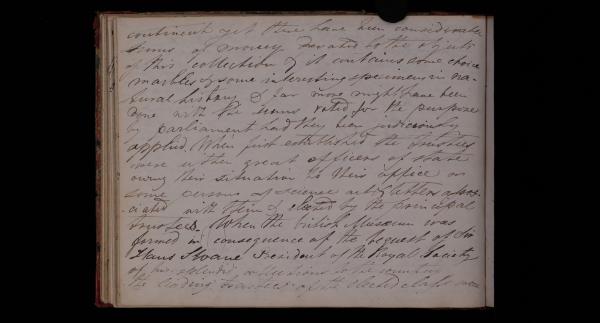 continent yet there have been considerable
sums of money devoted to the objects
of this collection & it contains some choice
marbles & some interesting specimens in na-
tural history & far more might have been
done with the sums voted for the purpose
by parliament had they been judiciously
applied. When first established the trustees
were either great officers of state
owing their situation to their office or
some persons of science or letters asso-
ciated with them & elected by the principal
trustees. When the British Museum was
formed in consequence of the bequest of Sir
Hans Sloane President of the Royal Society
of his splendid collections to the country
the leading trustees of the elected class were